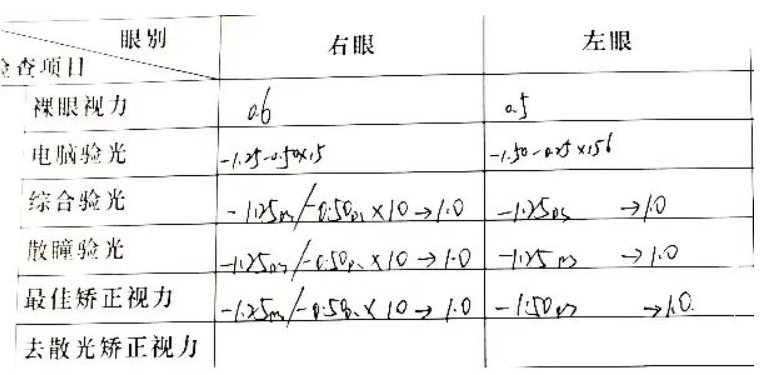 眼别 右眼 左眼
检查项目
裸眼视力 0.6 0.5
电脑验光 -1.25-0.50×15 -1.50-0.25×156
综合验光 -1.25DS/-0.50DC×10→1.0 -1.25DS →1.0
散瞳验光 -1.25DS/-0.50DC×10→1.0 -1.25DS →1.0
最佳矫正视力 -1.25DS/-0.50DC×10→1.0 -1.50DS →1.0
去散光矫正视力